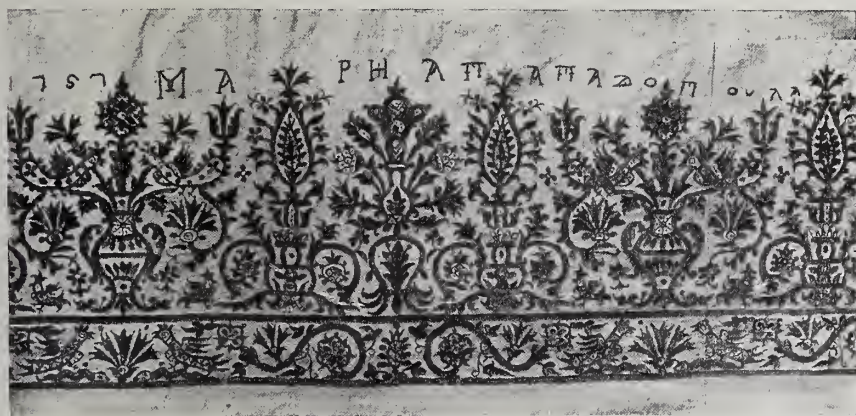 757 ΜΑΡΗΑ ΠΑΠΑΔΟΠΟΥΛΑ